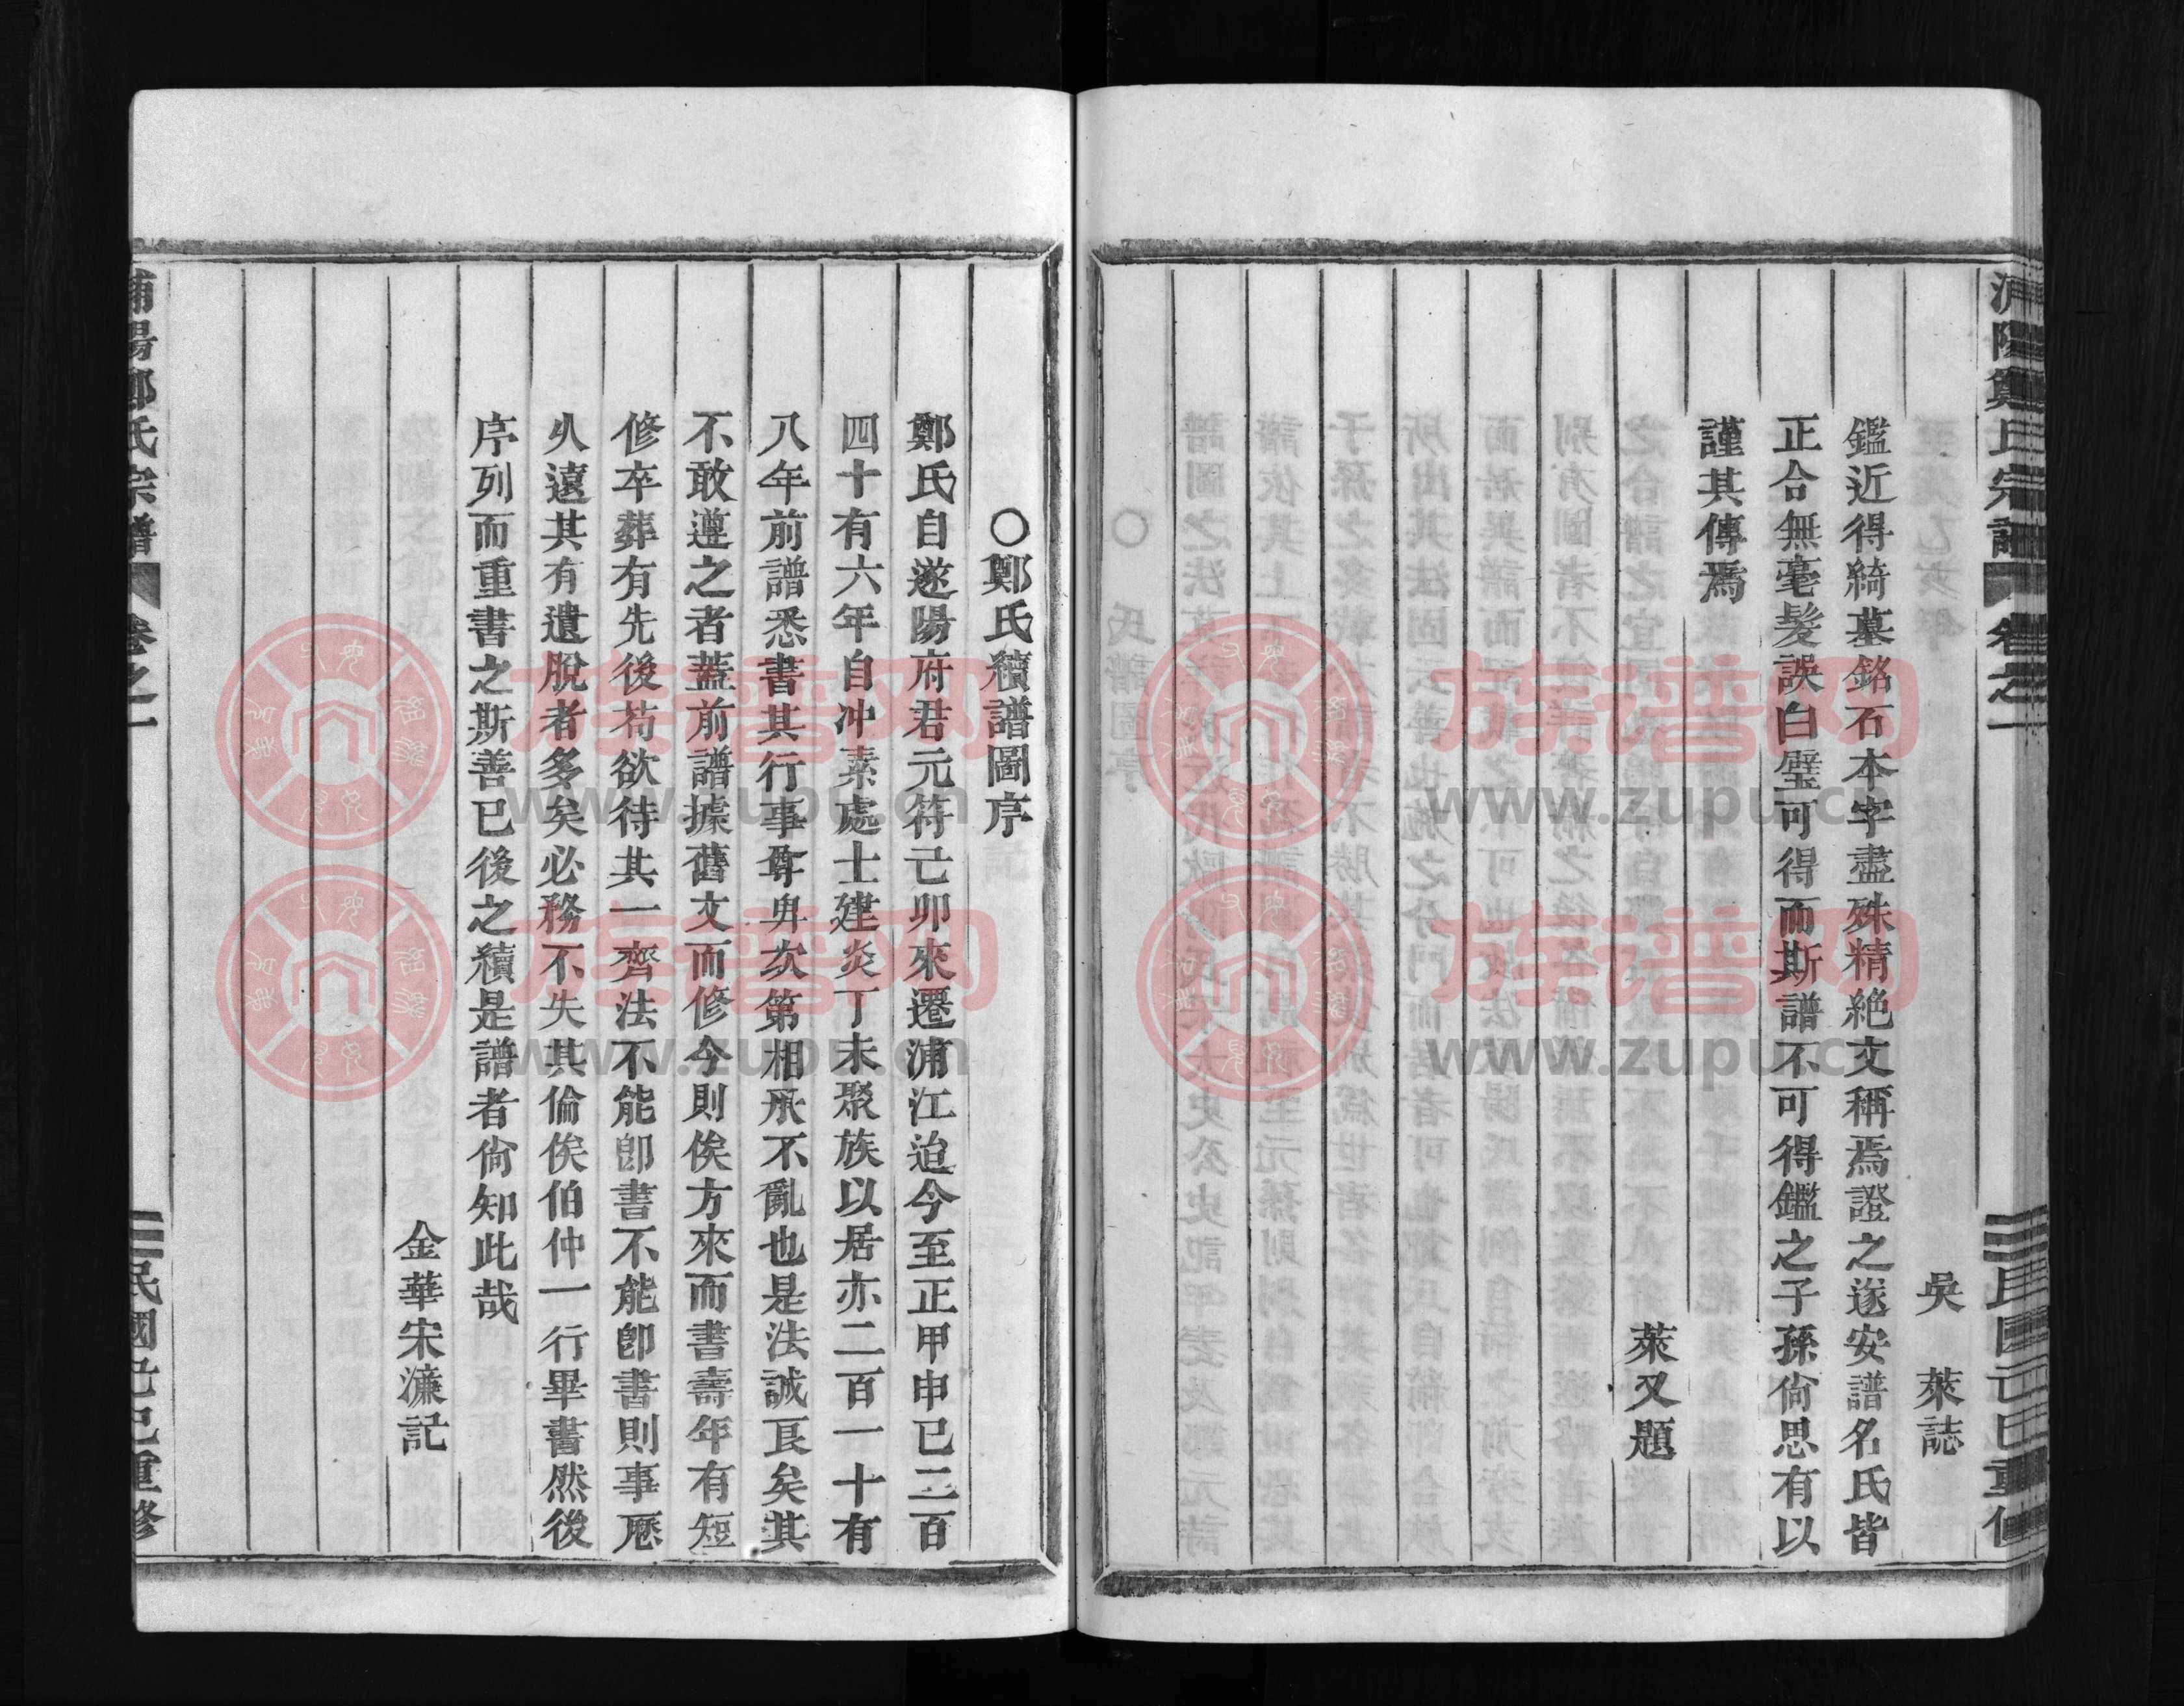 浦陽鄭氏宗譜 卷之一 民國己巳重修
吳 萊誌
鑑近得綺墓銘石本字盡殊精絶文稱焉證之遂安譜名氏皆
正合無毫髮誤白璧可得而斯譜不可得鑑之子孫尙思有以
謹其傳焉
萊又題
○鄭氏續譜圖序
鄭氏自遂陽府君元符己卯來遷浦江迨今至正甲申已二百
四十有六年自冲素處士建炎丁未聚族以居亦二百一十有
八年前譜悉書其行事尊卑次第相承不亂也是法誠良矣其
不敢遵之者蓋前譜據舊文而修今則俟方來而書壽年有短
修卒葬有先後苟欲待其一齊法不能卽書不能卽書則事歷
久遠其有遺脫者多矣必務不失其倫俟伯仲一行畢書然後
序列而重書之斯善已後之續是譜者尙知此哉
金華宋濂記
浦陽鄭氏宗譜 卷之一 民國己巳重修
族谱网
www.zupu.cn
族谱网
www.zupu.cn
族谱网
www.zupu.cn
族谱网
www.zupu.cn